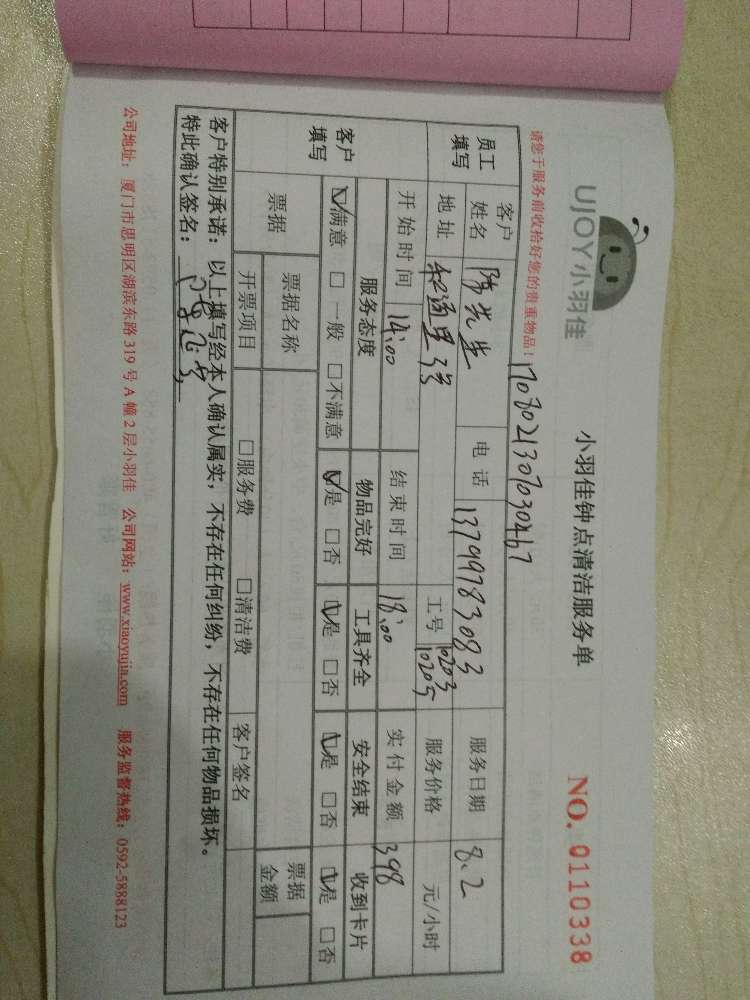 UJOY小羽佳
小羽佳钟点清洁服务单
NO. 0110338
请您于服务前收拾好您的贵重物品！
170802130703046 7
员工填写
客户姓名 陈先生 电话 13799783083 服务日期 8.2
地址 工号 10203 10205 服务价格 元/小时
开始时间 14:00 结束时间 18:00 实付金额 398
客户填写
服务态度 物品完好 工具齐全 安全结束 收到卡片
☑满意 □一般 □不满意 ☑是 □否 ☑是 □否 ☑是 □否 ☑是 □否
票据 票据名称 票据金额
开票项目 □服务费 □清洁费 客户签名
客户特别承诺：以上填写经本人确认属实，不存在任何纠纷，不存在任何物品损坏。
特此确认签名：
公司地址：厦门市思明区湖滨东路 319 号 A 幢 2 层小羽佳 公司网站：www.xiaoyujia.com 服务监督热线：0592-5888123